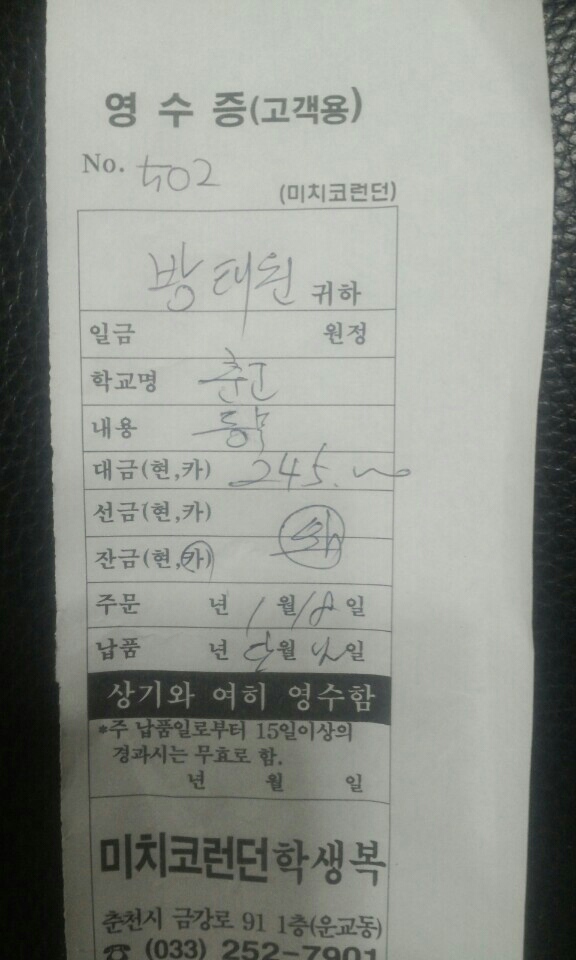 영 수 증(고객용)
No. 502
(미치코런던)
방태원 귀하
일금 원정
학교명 춘고
내용 동복
대금(현,카) 245.
선금(현,카)
잔금(현,카) 완
주문 년 1월 18일
납품 년 월 일
상기와 여히 영수함
*주 납품일로부터 15일이상의
경과시는 무효로 함.
년 월 일
미치코런던학생복
춘천시 금강로 91 1층(운교동)
☎ (033) 252-7901